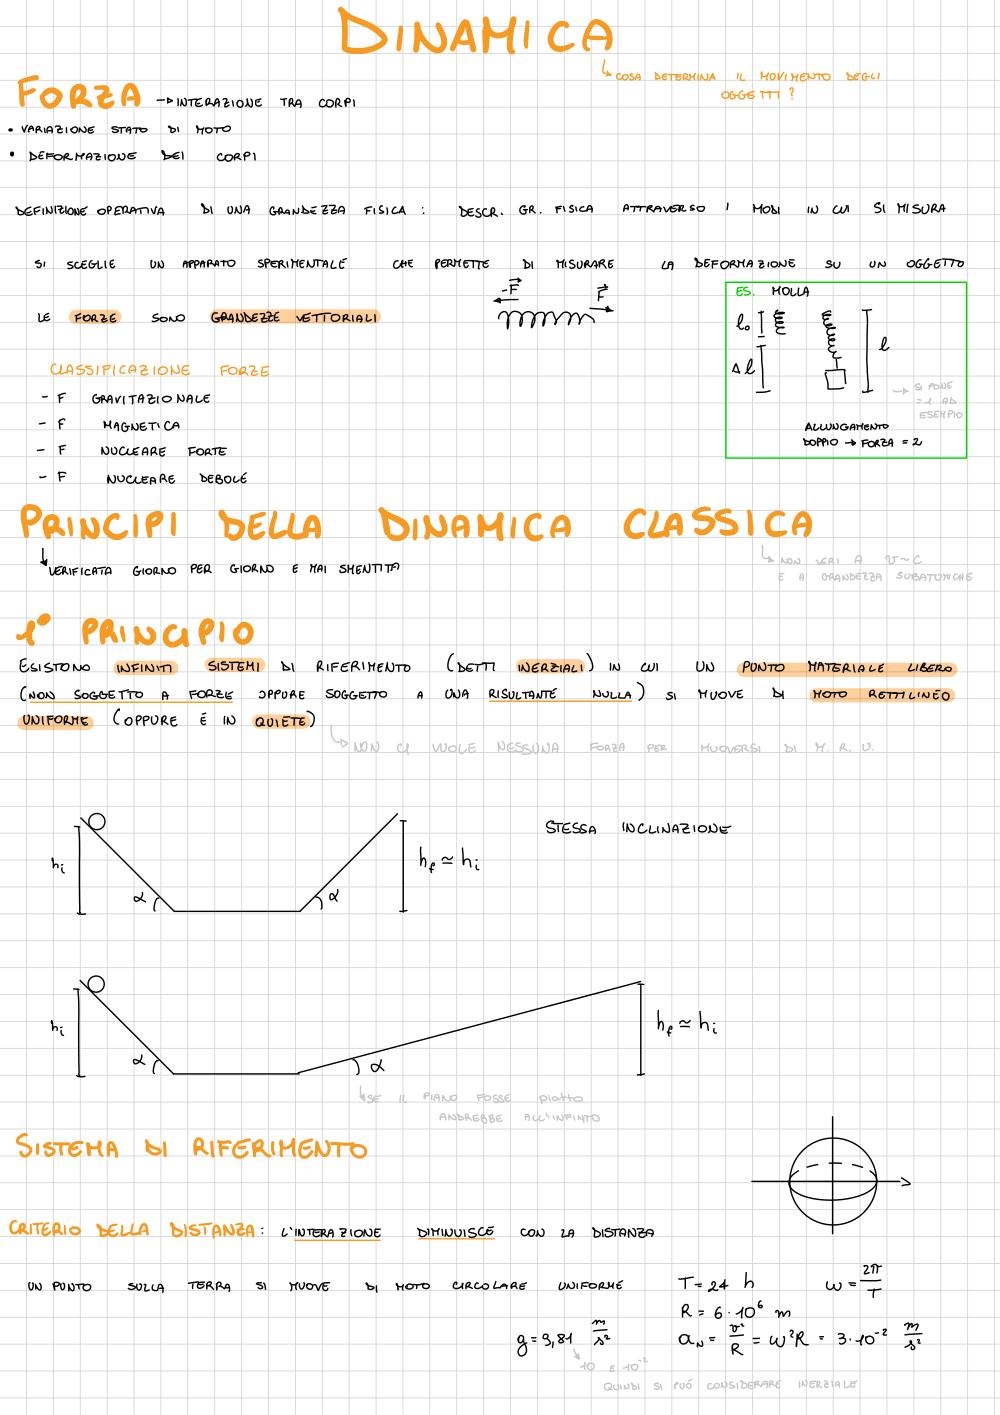 DINAMICA
↳ COSA DETERMINA IL MOVIMENTO DEGLI
OGGETTI ?
FORZA → INTERAZIONE TRA CORPI
• VARIAZIONE STATO DI MOTO
• DEFORMAZIONE DEI CORPI
DEFINIZIONE OPERATIVA DI UNA GRANDEZZA FISICA : DESCR. GR. FISICA ATTRAVERSO I MODI IN CUI SI MISURA
SI SCEGLIE UN APPARATO SPERIMENTALE CHE PERMETTE DI MISURARE LA DEFORMAZIONE SU UN OGGETTO
LE FORZE SONO GRANDEZZE VETTORIALI
-F⃗ F⃗
ES. MOLLA
l₀
Δl
l
→ SI PONE
=1 AD
ESEMPIO
ALLUNGAMENTO
DOPPIO → FORZA = 2
CLASSIFICAZIONE FORZE
- F GRAVITAZIONALE
- F MAGNETICA
- F NUCLEARE FORTE
- F NUCLEARE DEBOLE
PRINCIPI DELLA DINAMICA CLASSICA
↳ VERIFICATA GIORNO PER GIORNO E MAI SMENTITA
↳ NON VERI A v~c
E A GRANDEZZA SUBATOMICHE
1° PRINCIPIO
ESISTONO INFINITI SISTEMI DI RIFERIMENTO (DETTI INERZIALI) IN CUI UN PUNTO MATERIALE LIBERO
(NON SOGGETTO A FORZE OPPURE SOGGETTO A UNA RISULTANTE NULLA) SI MUOVE DI MOTO RETTILINEO
UNIFORME (OPPURE É IN QUIETE)
↳ NON CI VUOLE NESSUNA FORZA PER MUOVERSI DI M. R. U.
STESSA INCLINAZIONE
hᵢ
α
α
h_f ≃ hᵢ
hᵢ
α
α
h_f ≃ hᵢ
↳ SE IL PIANO FOSSE piatto
ANDREBBE ALL'INFINTO
SISTEMA DI RIFERIMENTO
CRITERIO DELLA DISTANZA : L'INTERAZIONE DIMINUISCE CON LA DISTANZA
UN PUNTO SULLA TERRA SI MUOVE DI MOTO CIRCOLARE UNIFORME
T = 24 h ω = 2π/T
R = 6 · 10⁶ m
g = 9,81 m/s²
a_N = v²/R = ω²R = 3 · 10⁻² m/s²
↘ 10 E 10⁻²
QUINDI SI PUÓ CONSIDERARE INERZIALE